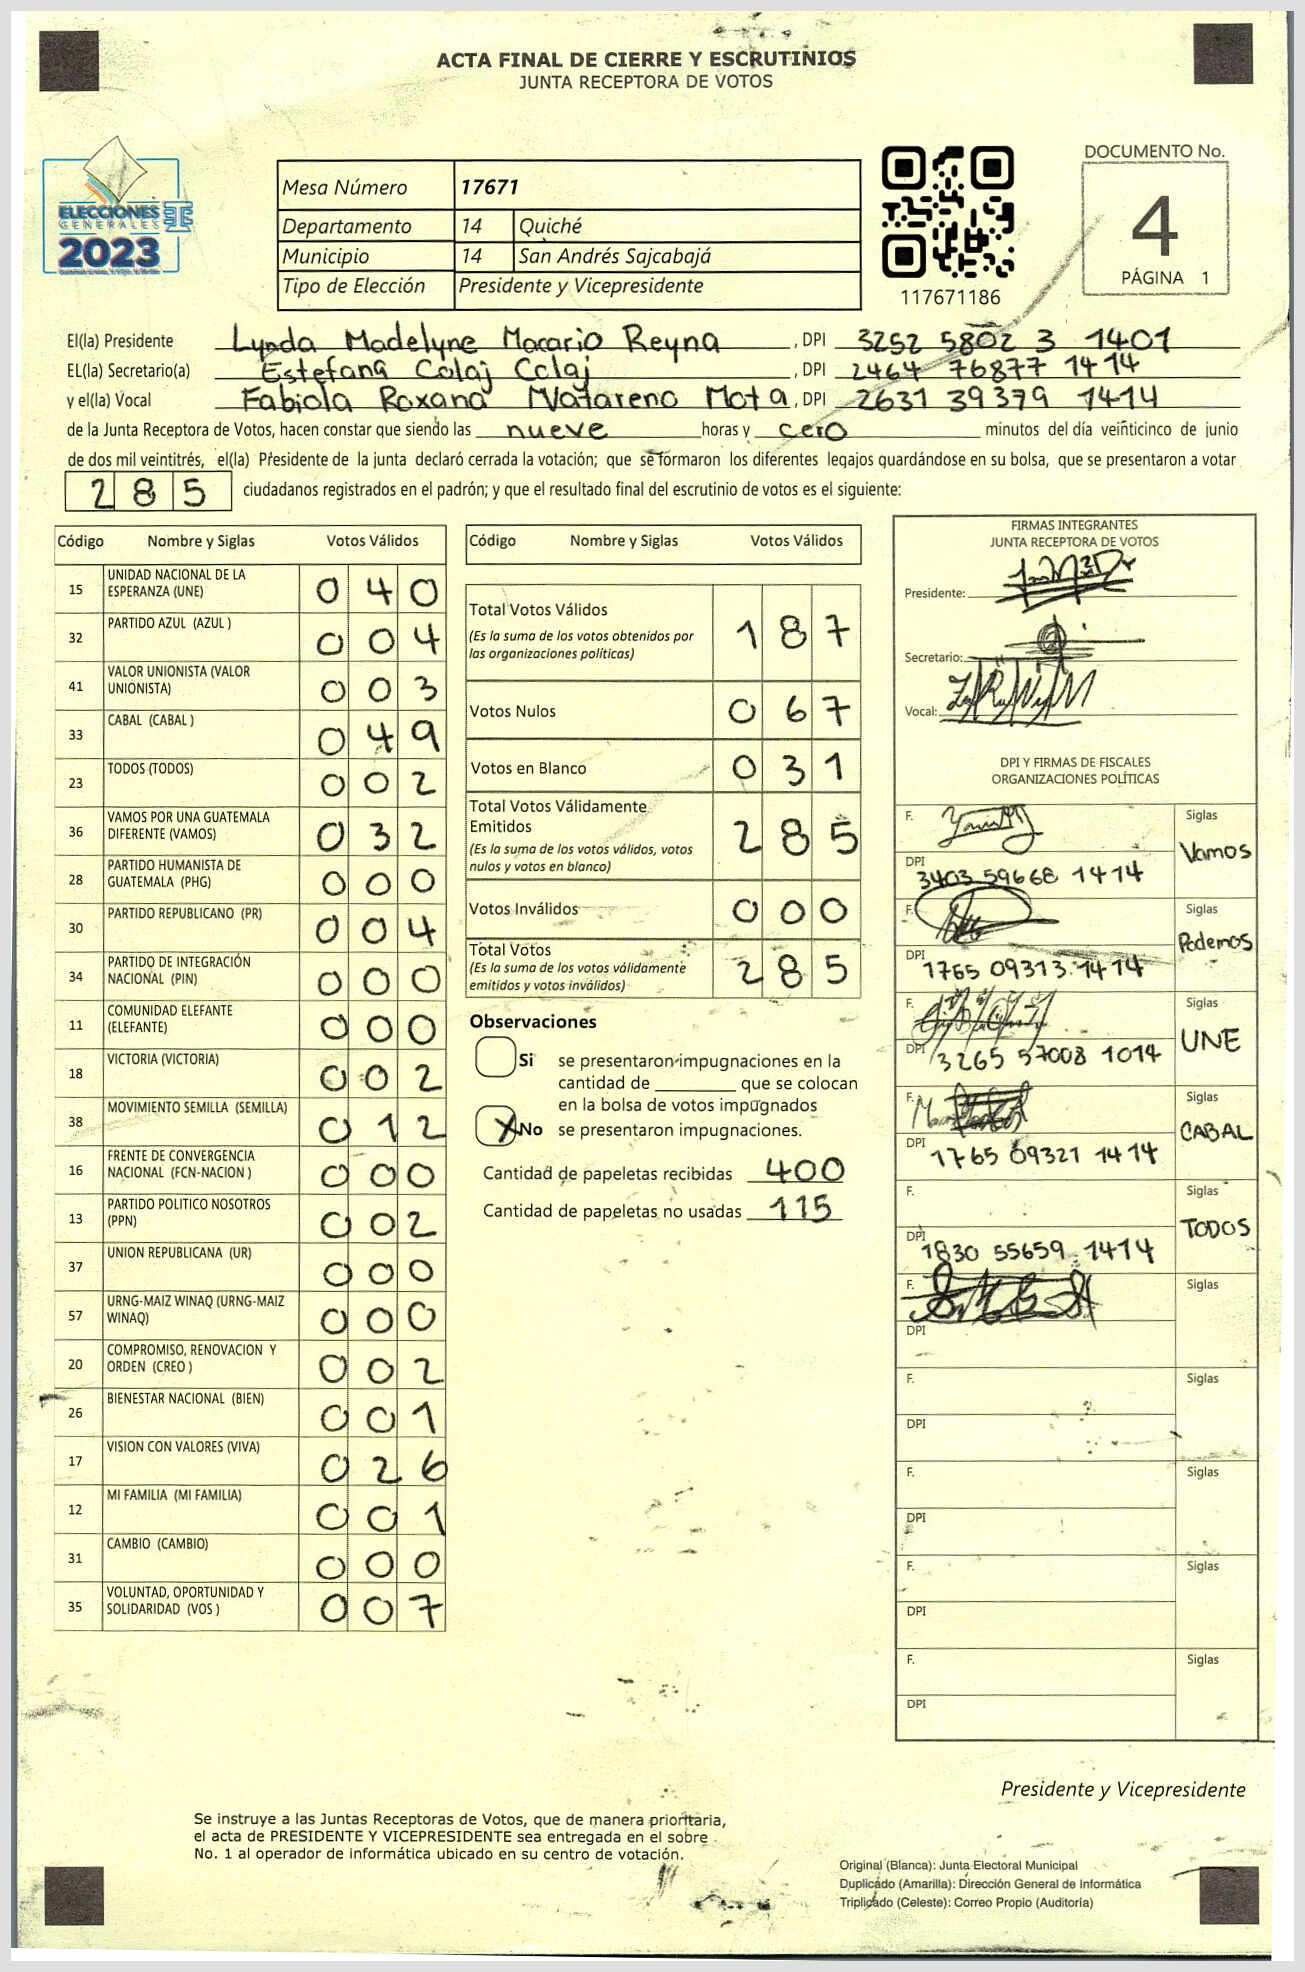 ACTA FINAL DE CIERRE Y ESCRUTINIOS
JUNTA RECEPTORA DE VOTOS
ELECCIONES
GENERALES
2023
Mesa Número 17671
Departamento 14 Quiché
Municipio 14 San Andrés Sajcabajá
Tipo de Elección Presidente y Vicepresidente
117671186
DOCUMENTO No.
4
PÁGINA 1
El(la) Presidente Lynda Madelyne Macario Reyna, DPI 3252 5802 3 1401
EL(la) Secretario(a) Estefana Calaj Calaj, DPI 2464 76877 1414
y el(la) Vocal Fabiola Roxana Natareno Mota, DPI 2631 39379 1414
de la Junta Receptora de Votos, hacen constar que siendo las nueve horas y cero minutos del día veinticinco de junio
de dos mil veintitrés, el(la) Presidente de la junta declaró cerrada la votación; que se formaron los diferentes legajos guardándose en su bolsa, que se presentaron a votar
285 ciudadanos registrados en el padrón; y que el resultado final del escrutinio de votos es el siguiente:
Código Nombre y Siglas Votos Válidos
15 UNIDAD NACIONAL DE LA
ESPERANZA (UNE) 040
32 PARTIDO AZUL (AZUL ) 004
41 VALOR UNIONISTA (VALOR
UNIONISTA) 003
33 CABAL (CABAL ) 049
23 TODOS (TODOS) 002
36 VAMOS POR UNA GUATEMALA
DIFERENTE (VAMOS) 032
28 PARTIDO HUMANISTA DE
GUATEMALA (PHG) 000
30 PARTIDO REPUBLICANO (PR) 004
34 PARTIDO DE INTEGRACIÓN
NACIONAL (PIN) 000
11 COMUNIDAD ELEFANTE
(ELEFANTE) 000
18 VICTORIA (VICTORIA) 002
38 MOVIMIENTO SEMILLA (SEMILLA) 012
16 FRENTE DE CONVERGENCIA
NACIONAL (FCN-NACION ) 000
13 PARTIDO POLITICO NOSOTROS
(PPN) 002
37 UNION REPUBLICANA (UR) 000
57 URNG-MAIZ WINAQ (URNG-MAIZ
WINAQ) 000
20 COMPROMISO, RENOVACION Y
ORDEN (CREO ) 002
26 BIENESTAR NACIONAL (BIEN) 001
17 VISION CON VALORES (VIVA) 026
12 MI FAMILIA (MI FAMILIA) 001
31 CAMBIO (CAMBIO) 000
35 VOLUNTAD, OPORTUNIDAD Y
SOLIDARIDAD (VOS ) 007
Código Nombre y Siglas Votos Válidos
Total Votos Válidos 187
(Es la suma de los votos obtenidos por
las organizaciones políticas)
Votos Nulos 067
Votos en Blanco 031
Total Votos Válidamente
Emitidos 285
(Es la suma de los votos válidos, votos
nulos y votos en blanco)
Votos Inválidos 000
Total Votos 285
(Es la suma de los votos válidamente
emitidos y votos inválidos)
Observaciones
Si se presentaron impugnaciones en la
cantidad de ________ que se colocan
en la bolsa de votos impugnados
X No se presentaron impugnaciones.
Cantidad de papeletas recibidas 400
Cantidad de papeletas no usadas 115
FIRMAS INTEGRANTES
JUNTA RECEPTORA DE VOTOS
Presidente:
Secretario:
Vocal:
DPI Y FIRMAS DE FISCALES
ORGANIZACIONES POLÍTICAS
F. Siglas
Vamos
DPI 3403 59668 1414
F. Siglas
Podemos
DPI 1765 09313 1414
F. Siglas
UNE
DPI 3265 57008 1014
F. Siglas
CABAL
DPI 1765 09321 1414
F. Siglas
TODOS
DPI 1830 55659 1414
F. Siglas
DPI
F. Siglas
DPI
F. Siglas
DPI
F. Siglas
DPI
F. Siglas
DPI
Presidente y Vicepresidente
Se instruye a las Juntas Receptoras de Votos, que de manera prioritaria,
el acta de PRESIDENTE Y VICEPRESIDENTE sea entregada en el sobre
No. 1 al operador de informática ubicado en su centro de votación.
Original (Blanca): Junta Electoral Municipal
Duplicado (Amarilla): Dirección General de Informática
Triplicado (Celeste): Correo Propio (Auditoría)